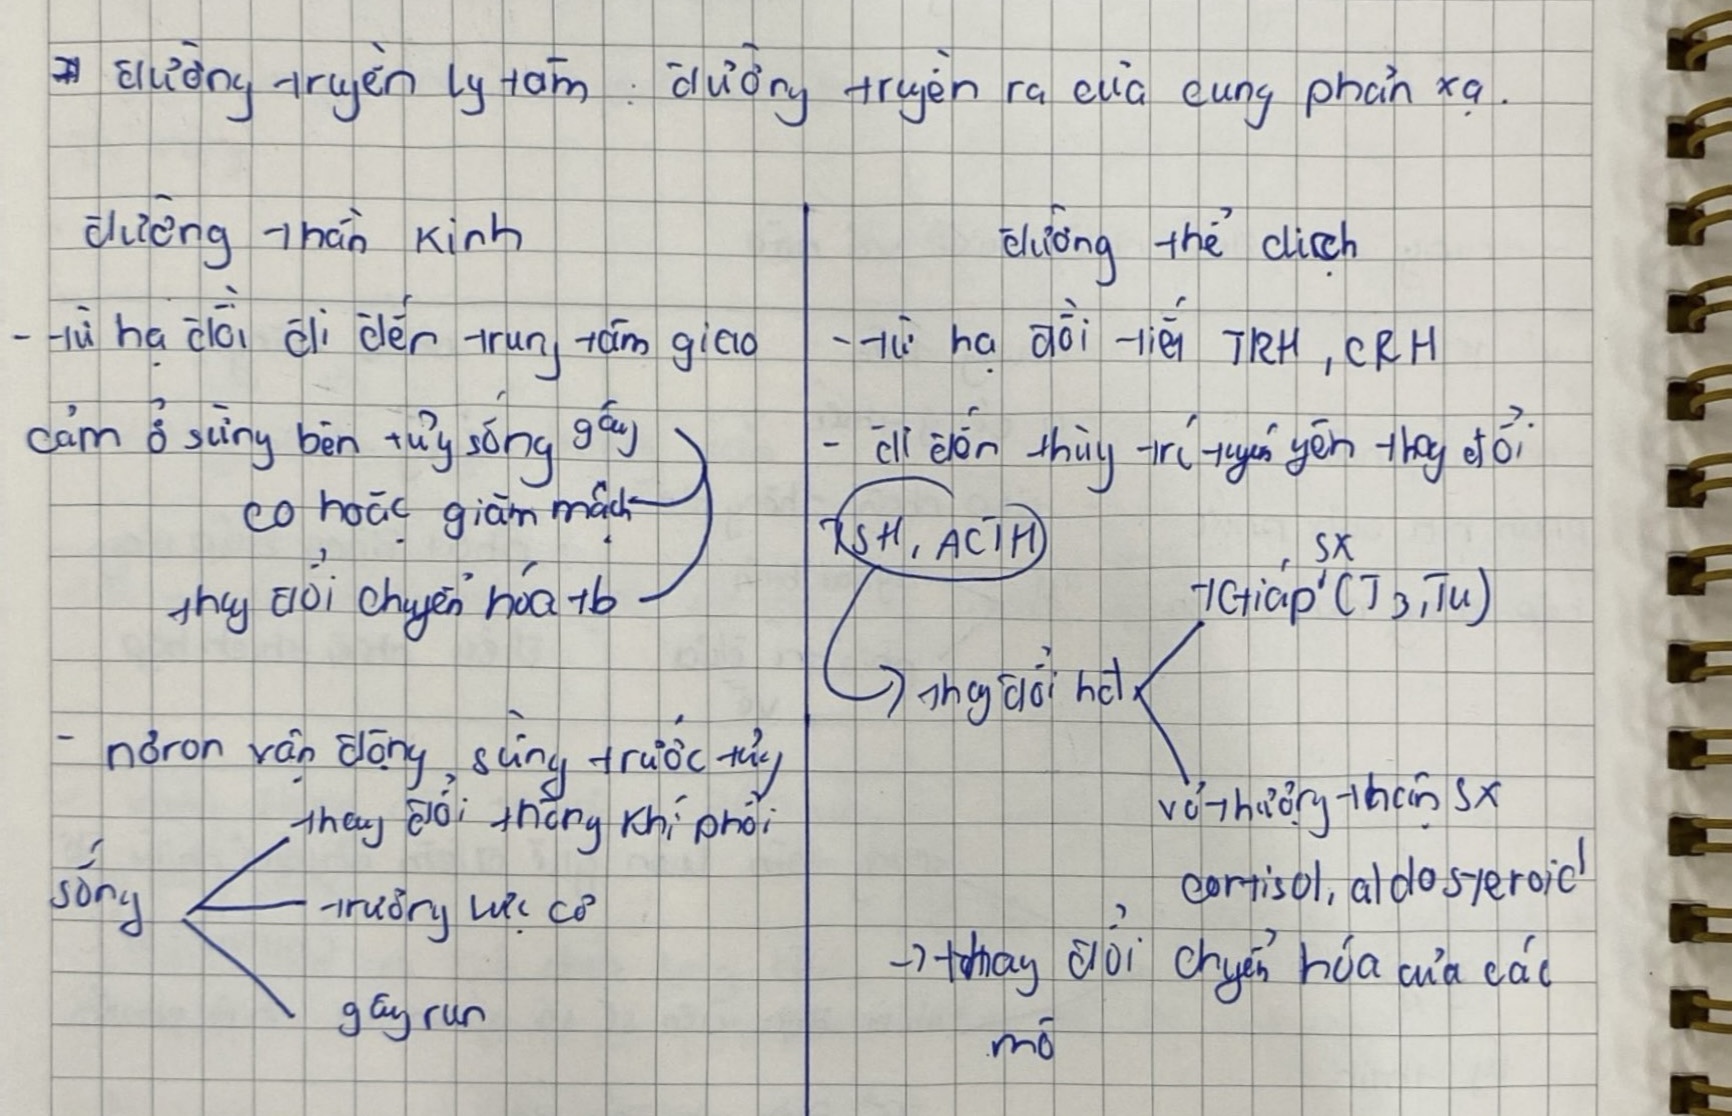 * đường truyền ly tâm : đường truyền ra của cung phản xạ.
đường thần kinh
- từ hạ đồi đi đến trung tâm giao
cảm ở sừng bên tủy sống gây
co hoặc giãn mạch
thay đổi chuyển hóa tb
- nơron vận động sừng trước tủy
sống
thay đổi thông khí phổi
trương lực cơ
gây run
đường thể dịch
- từ hạ đồi tiết TRH, CRH
- đi đến thùy trc tuyến yên thay đổi
TSH, ACTH
→ thay đổi hđ
tGiáp sx (T3, T4)
vỏ thượng thận sx
cortisol, aldosteroid
→ thay đổi chuyển hóa của các
mô